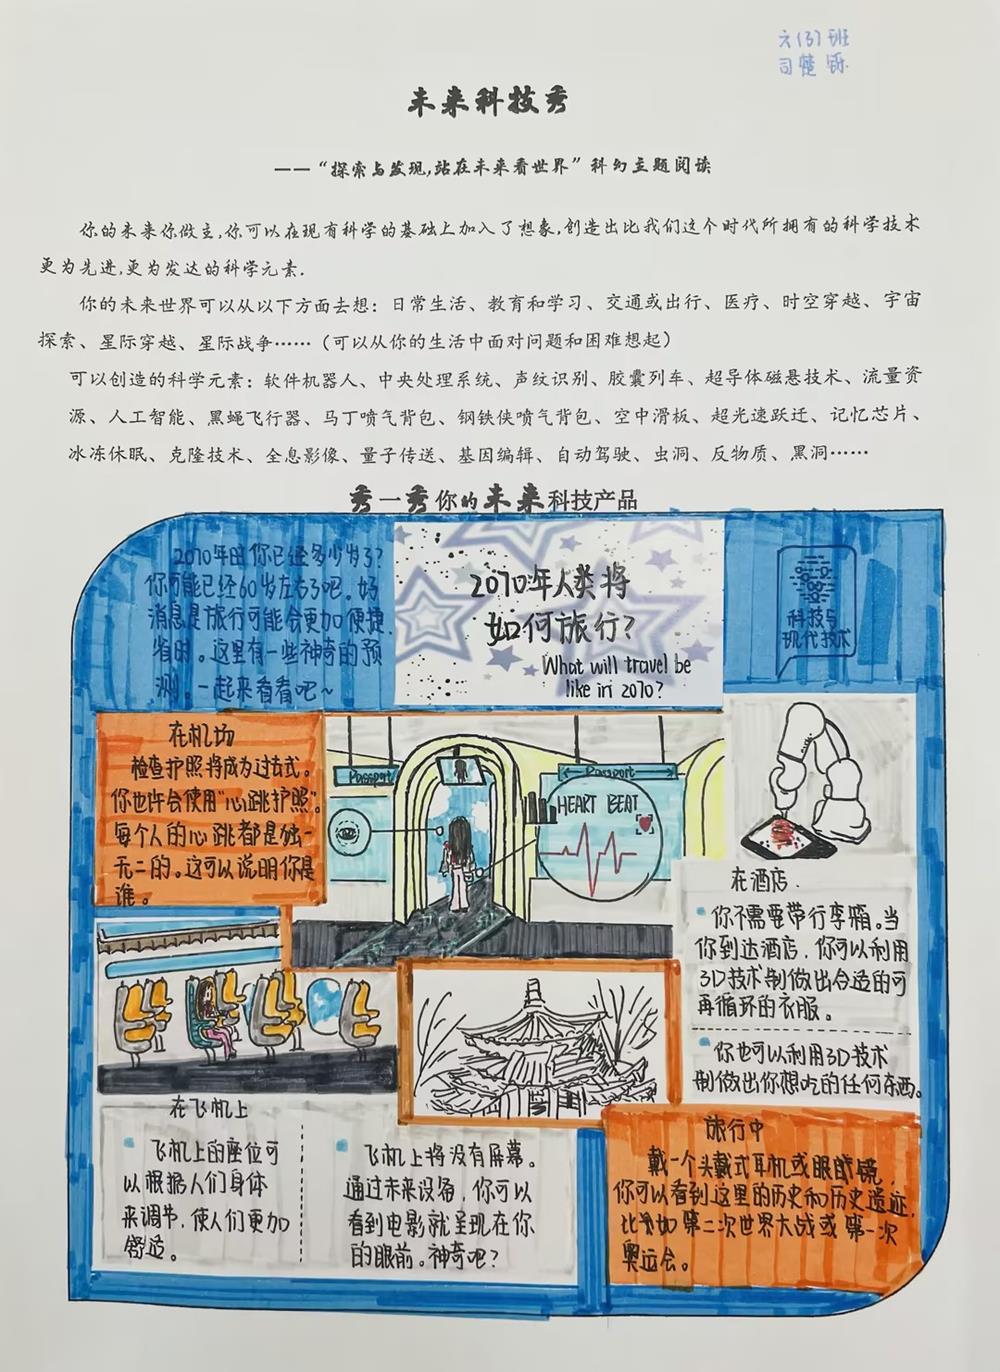 六(3)班
司楚
未来科技秀
——“探索与发现,站在未来看世界”科幻主题阅读
你的未来你做主,你可以在现有科学的基础上加入了想象,创造出比我们这个时代所拥有的科学技术
更为先进,更为发达的科学元素.
你的未来世界可以从以下方面去想：日常生活、教育和学习、交通或出行、医疗、时空穿越、宇宙
探索、星际穿越、星际战争……（可以从你的生活中面对问题和困难想起）
可以创造的科学元素：软件机器人、中央处理系统、声纹识别、胶囊列车、超导体磁悬技术、流量资
源、人工智能、黑蝇飞行器、马丁喷气背包、钢铁侠喷气背包、空中滑板、超光速跃迁、记忆芯片、
冰冻休眠、克隆技术、全息影像、量子传送、基因编辑、自动驾驶、虫洞、反物质、黑洞……
秀一秀你的未来科技产品
2070年时你已经多少岁了?
你可能已经60岁左右了吧。好
消息是旅行可能会更加便捷
省时。这里有一些神奇的预
测。一起来看看吧~
2070年人类将
如何旅行?
What will travel be
like in 2070?
科技与
现代技术
在机场
检查护照将成为过去式。
你也许会使用“心跳护照”。
每个人的心跳都是独一
无二的。这可以说明你是
谁。
Passport
Passport
HEART BEAT
在酒店.
你不需要带行李箱。当
你到达酒店,你可以利用
3D技术制做出合适的可
再循环的衣服。
你也可以利用3D技术
制做出你想吃的任何东西。
在飞机上
飞机上的座位可
以根据人们身体
来调节,使人们更加
舒适。
飞机上将没有屏幕。
通过未来设备,你可以
看到电影就呈现在你
的眼前。神奇吧?
旅行中
戴一个头戴式耳机或眼镜,
你可以看到这里的历史和历史遗迹,
比如第二次世界大战或第一次
奥运会。